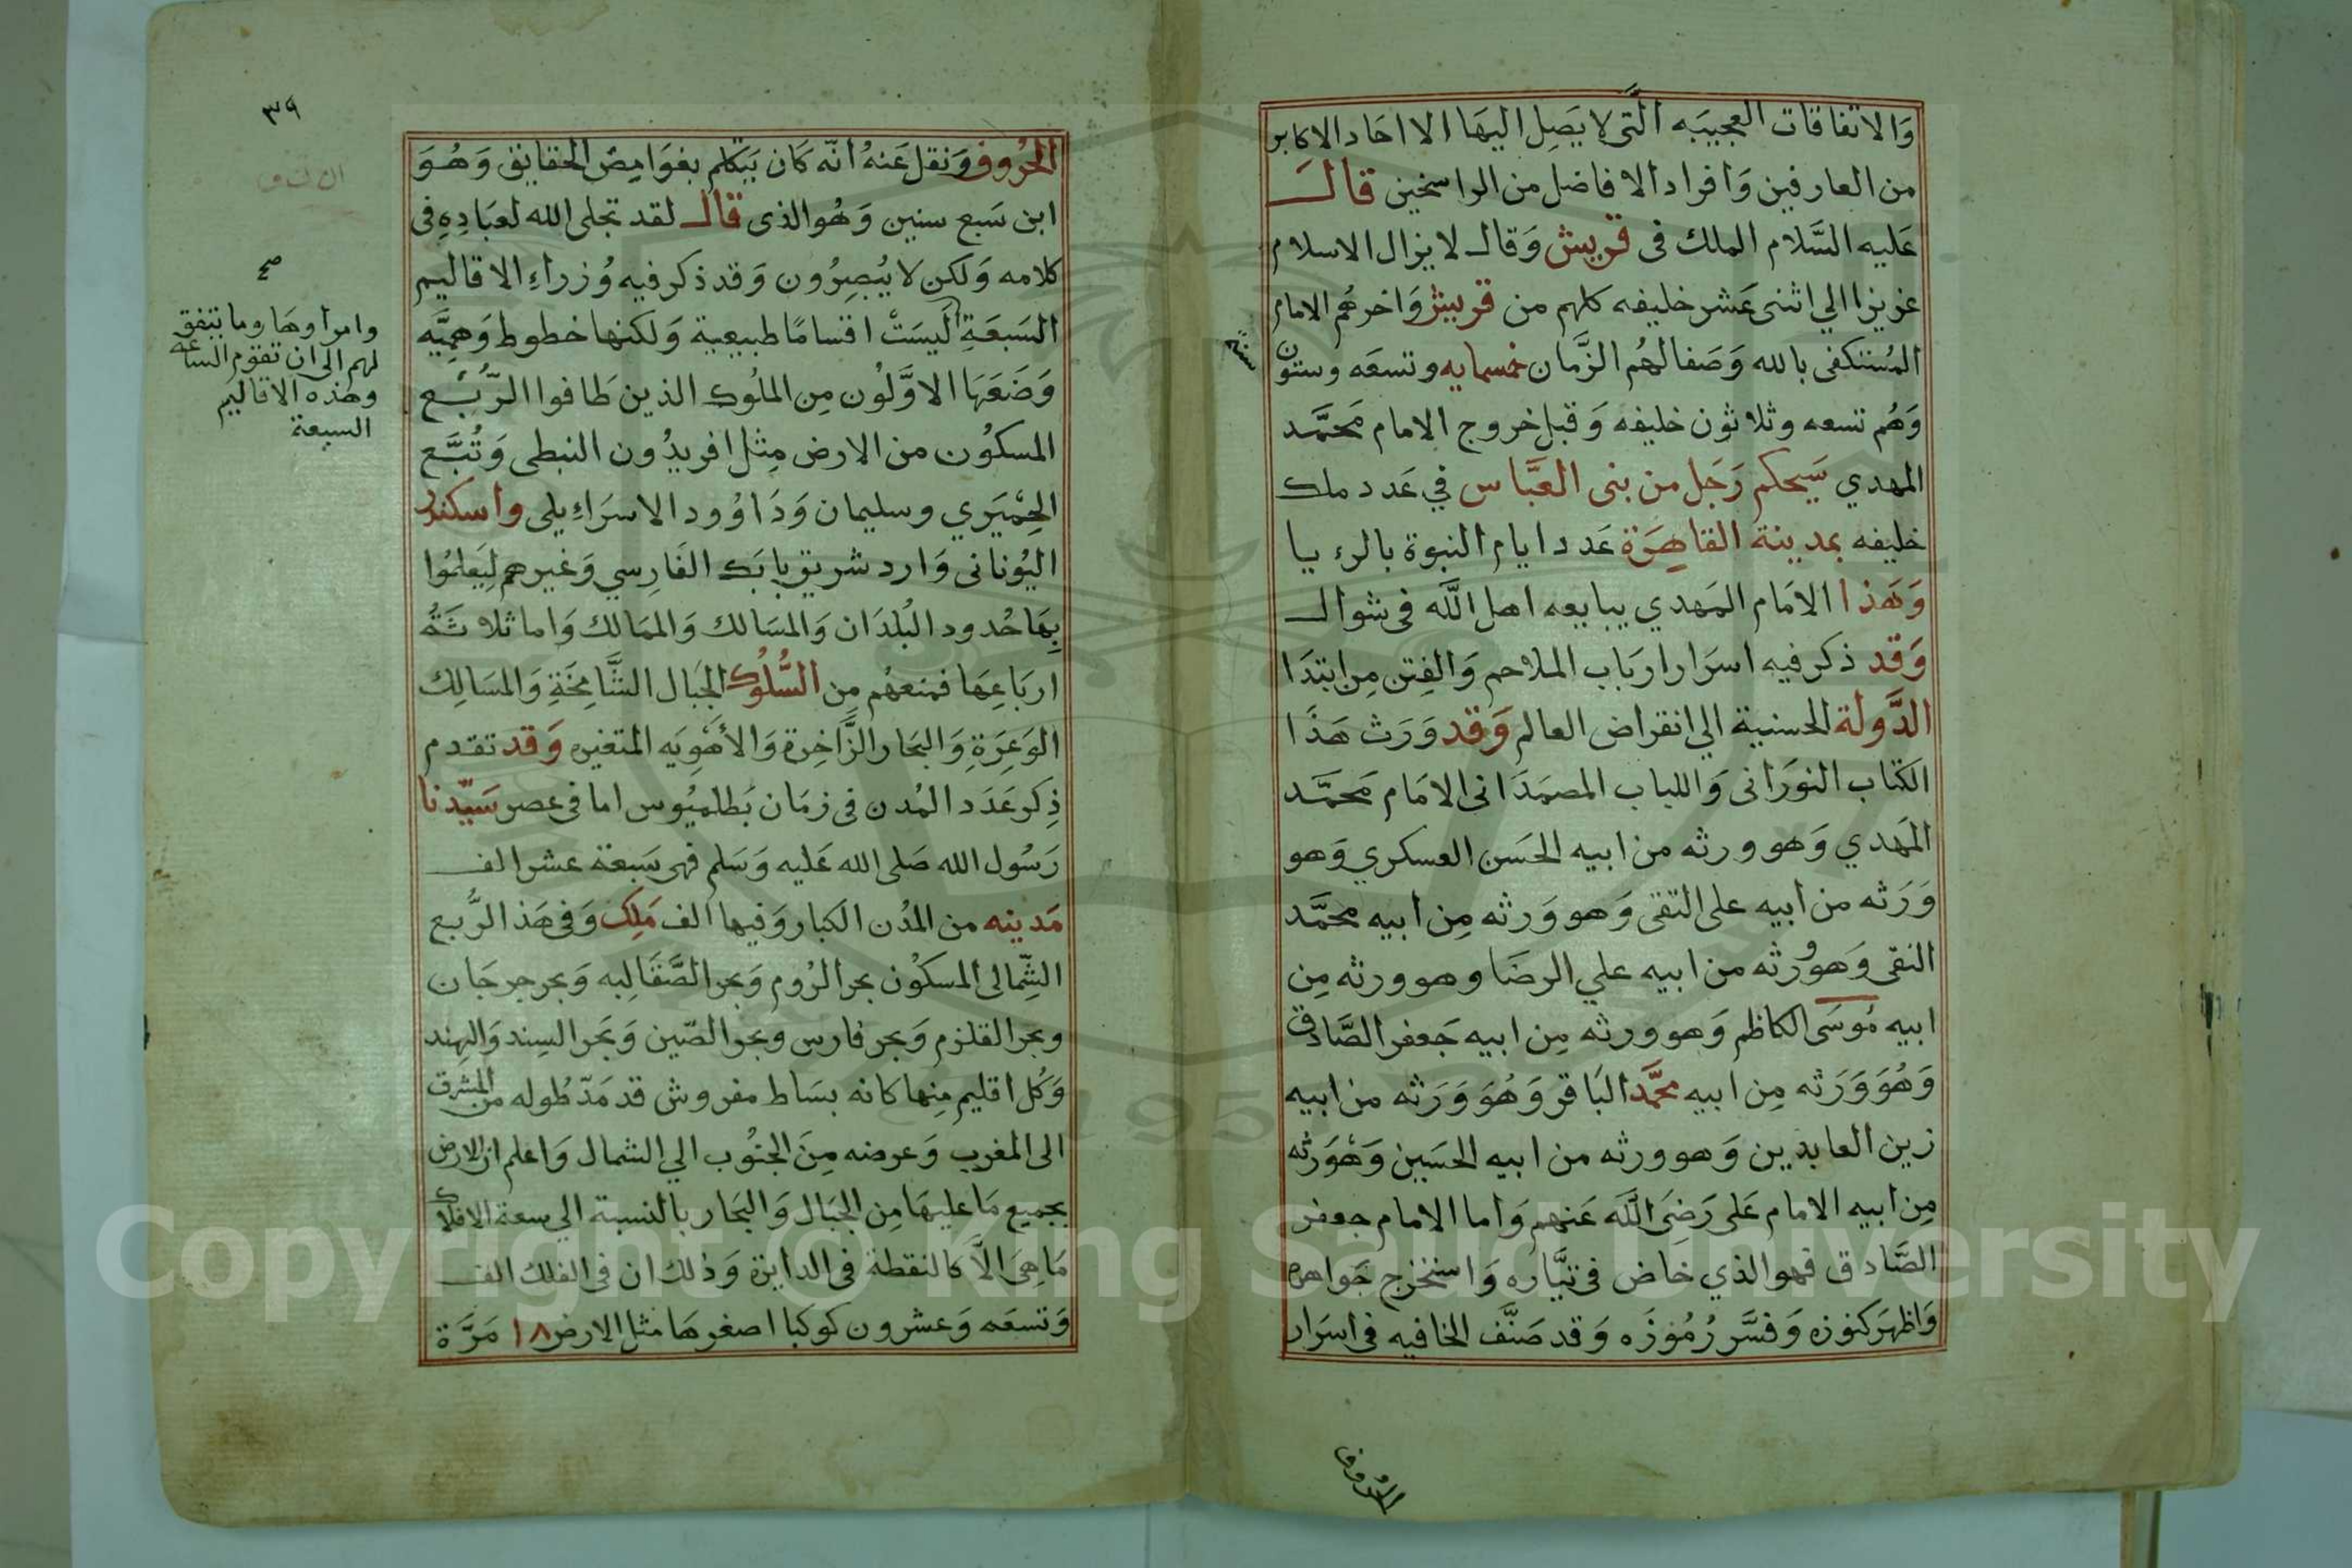 وَالاتفاقات العجيبَه الَّتى لا يَصِل اليهَا الا احَاد الاكابر
من العارفين وَافراد الافاضل من الراسخين قال
عَليه السَّلام الملك فى قريش وَقال لا يزال الاسلام
عزيزا الي اثنى عَشر خليفه كلهم من قريش وَاخرهم الامام
المُستكفى بالله وَصَفا لهُم الزَّمان خمسمايه وتسعَه وستون
سنة
وَهُم تسعه وثلاثون خليفه وَقبل خروج الامام محَمَّد
المهدي سَيحكم رَجَل من بنى العبَّاس في عَدد ملك
خليفه بمدينة القاهِرَة عَدد ايام النبوة بالرءيا
وَهَذا الامَام المَهدي يبايعه اهل اللَّه فى شوال
وَقد ذكر فيه اسرَار ارَباب الملاحم وَالفِتن مِن ابتدَا
الدَّولَة الحسنية الي انقراض العالم وَقد وَرَث هَذَا
الكتاب النورَانى وَاللباب الصمَدَانى الامَام محَمَّد
المَهدي وَهو ورثه من ابيه الحَسَن العسكري وَهو
وَرَثه من ابيه على التقى وَهو وَرثه مِن ابيه محمَّد
النقى وَهو وُرثه من ابيه علي الرضَا وهو ورثه مِن
ابيه مُوسَى الكاظم وَهو ورثه مِن ابيه جَعفر الصَّادق
وَهُوَ وَرَثه مِن ابيه محمَّد البَاقر وَهُوَ وَرَثه من ابيه
زين العابدين وَهو ورثه من ابيه الحسَين وَهْوَ رثه
مِن ابيه الامام عَلى رَضِىَ اللَّه عَنهم وَاما الامام جعفر
الصَّادق فهو الذي خاض فى تيَّاره وَاستخرج جَواهره
وَاظهَر كنوزه وَفسَّر رُمُوزَه وَقد صَنَّف الخافيه فى اسرَار
الحُروف
٣٩
الحُرُوف وَنقل عَنهُ انّه كَان يَتكلم بغوَامِض الحقايق وَهُوَ
ابن سَبع سنين وَهُو الذى قال لقد تجلى الله لعبَادِهِ فى
كلامه وَلكن لا يُبصِرُون وَقد ذكر فيه وُزراءِ الاقاليم
السَبعَةِ الَيسَتْ اقسامًا طبيعية وَلكنها خطوط وَهميَّه
صح
وامراوهَا وما يتفق
لهم الى ان تقوم الساعة
وهذه الاقاليم
السبعة
وَضَعَهَا الاوَّلُون مِن الملُوك الذين طَافوا الرُّبع
المسكوُن من الارض مِثل افريدُون النبطى وَتُبَّع
الحِمْيَري وسليمان وَدَاوُود الاسرَاءِيلى واسكندر
اليُونانى وَاردشير بن بابَك الفَارِسي وَغيرهم لِيَعلمُوا
بِهَا حُدود البُلدَان وَالمسَالك وَالممَالك وَاما ثلاثَةُ
اربَاعِهَا فمنعهُم مِن السُّلُوك الجبَال الشَّامِخَةِ وَالمسَالِك
الوَعِرَةِ وَالبحَار الزَّاخِرة وَالأَهْوِيَه المتغيره وَقد تقدم
ذِكر عَدَد المُدن فى زمَان بَطلميُوس اما فى عصر سَيّدنا
رَسُول الله صَلى الله عَليه وَسَلم فهى سَبعة عشر الف
مَدينه من المدُن الكبار وَفيها الف مَلِك وَفى هَذ الرُّبع
الشِّمالى المسكوُن بحر الرُوم وَبحر الصَّقَالِبه وَبحر جرجَان
وبحر القلزم وَبحر فارس وبحر الصّين وَبَحر السِند وَالهِند
وَكُل اقليم مِنها كانه بسَاط مفروش قد مَدّ طُوله من المشرق
الى المغرب وَعرضه مِنَ الجنُوب الي الشمال وَاعلم ان الارض
بجميع مَا عليهَا مِن الجبَال وَالبحَار بالنسبة الي سعة الافلاك
مَا هِىَ الَّا كالنقطة فى الدايرة وَذلك ان فى الفلك الف
وَتسعَه وَعشرون كوكبا اصغرهَا مثل الارض ١٨ مَرَّة
Copyright © King Saud University